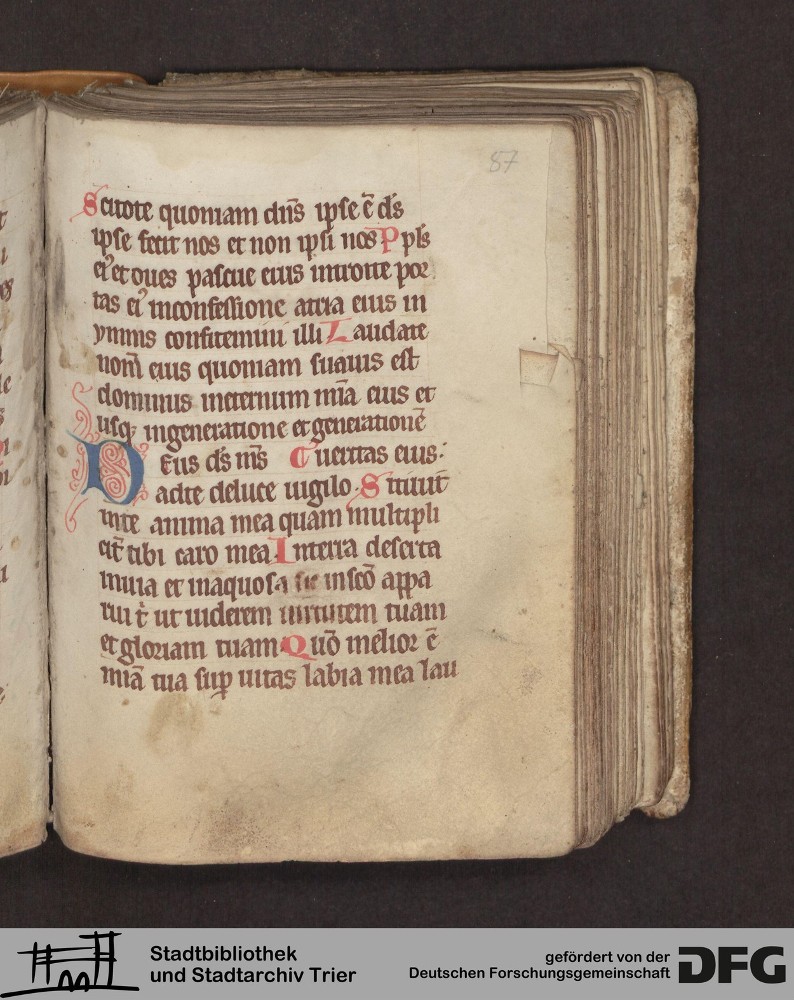 87
Scitote quoniam dn̄s ipse ē ds̄
ipse fecit nos et non ipsi nos Ppls̄
eiꝰ et oues pascue eius introite por
tas eiꝰ inconfessione atria eius in
ymnis confitemini illi Laudate
nom̄ eius quoniam suauis est
dominus ineternum mīa eius et
usqꝫ ingeneratione et generationē
Deus ds̄ ms̄ ueritas eius
ad te deluce uigilo Sitiuit
inte anima mea quam multipli
cit̄ tibi caro mea Interra deserta
inuia et inaquosa sic insc̄o appa
rui t̄ ut uiderem uirtutem tuam
et gloriam tuam Quō melior ē
mīa tua suꝑ uitas labia mea lau
Stadtbibliothek
und Stadtarchiv Trier
gefördert von der
Deutschen Forschungsgemeinschaft
DFG